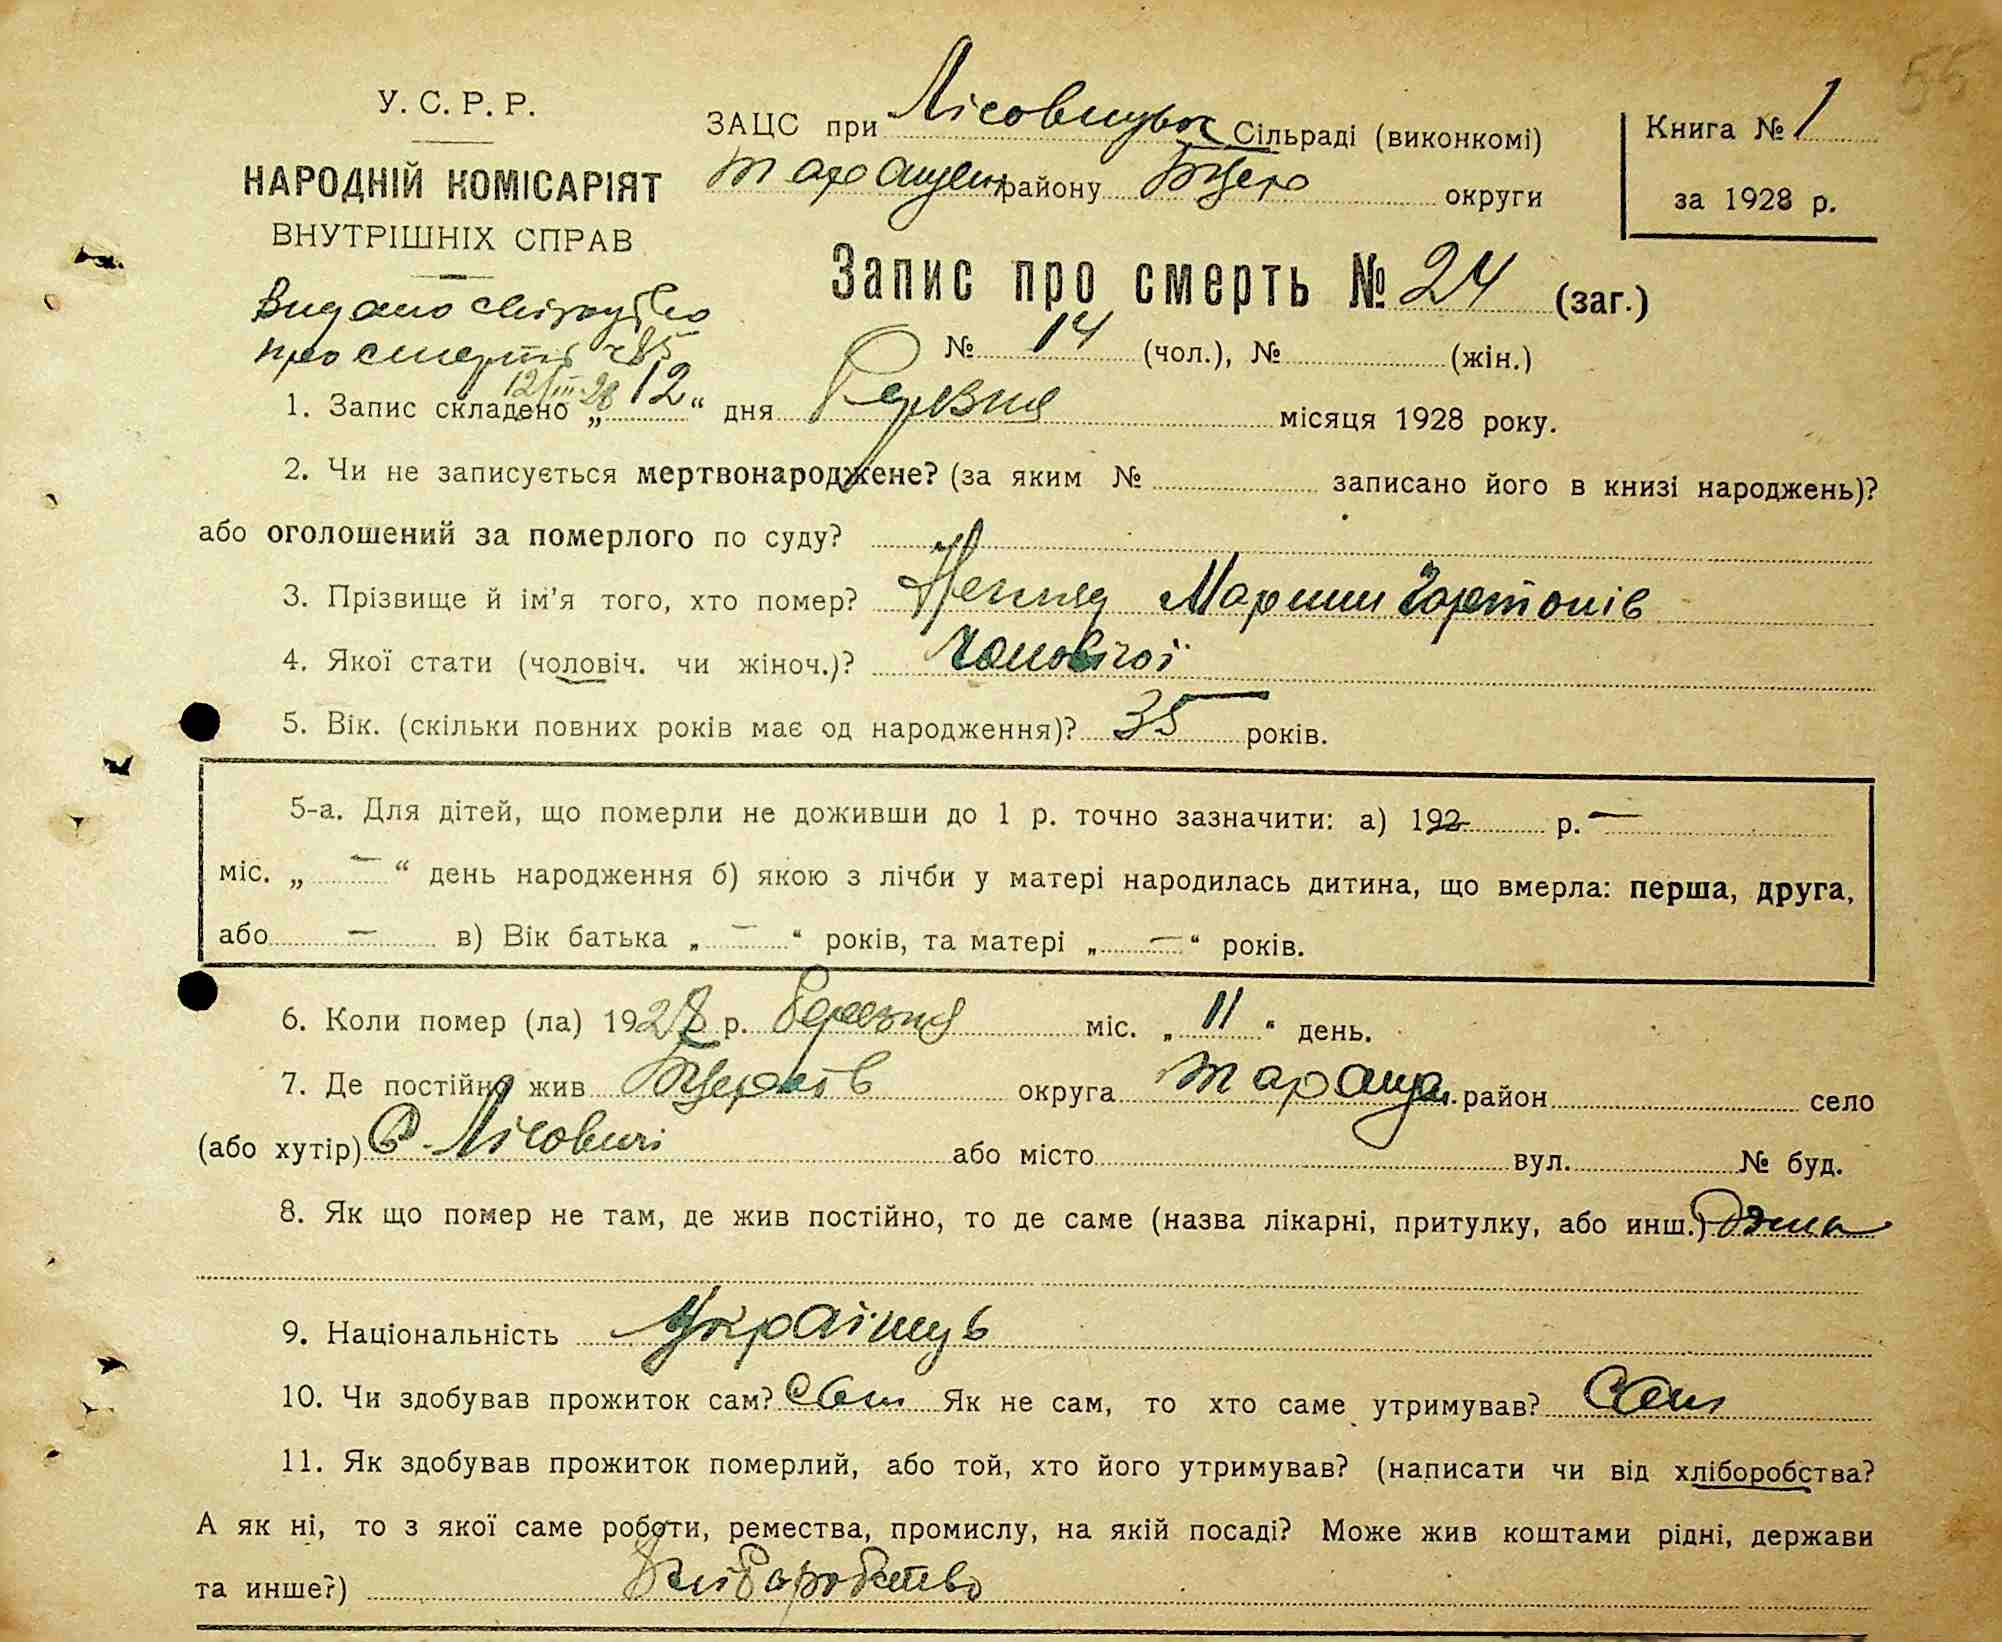 56
У. С. Р. Р.
НАРОДНІЙ КОМІСАРІЯТ
ВНУТРІШНІХ СПРАВ
Видано
про смерть 85
12/III-28
ЗАЦС при Лісовицьк Сільраді (виконкомі)
Таращен району Бцерк округи
Книга № 1
за 1928 р.
Запис про смерть № 24 (заг.)
№ 14 (чол.), № (жін.)
1. Запис складено „ 12 “ дня Березня місяця 1928 року.
2. Чи не записується мертвонароджене? (за яким № записано його в книзі народжень)?
або оголошений за померлого по суду?
3. Прізвище й ім’я того, хто помер? Мартин
4. Якої стати (чоловіч. чи жіноч.)? Чоловічої
5. Вік. (скільки повних років має од народження)? 35 років.
5-а. Для дітей, що померли не доживши до 1 р. точно зазначити: а) 192 — р. —
міс. „ — “ день народження б) якою з лічби у матері народилась дитина, що вмерла: перша, друга,
або — в) Вік батька „ — “ років, та матері „ — “ років.
6. Коли помер (ла) 1928 р. Березня міс. „ 11 “ день.
7. Де постійно жив Бцерків округа Таращан. район село
(або хутір) С. Лісовичі або місто вул. № буд.
8. Як що помер не там, де жив постійно, то де саме (назва лікарні, притулку, або инш.) Дома
9. Національність Українець
10. Чи здобував прожиток сам? Сам Як не сам, то хто саме утримував? Сам
11. Як здобував прожиток померлий, або той, хто його утримував? (написати чи від хліборобства?
А як ні, то з якої саме роботи, ремества, промислу, на якій посаді? Може жив коштами рідні, держави
та инше?) Хліборобство